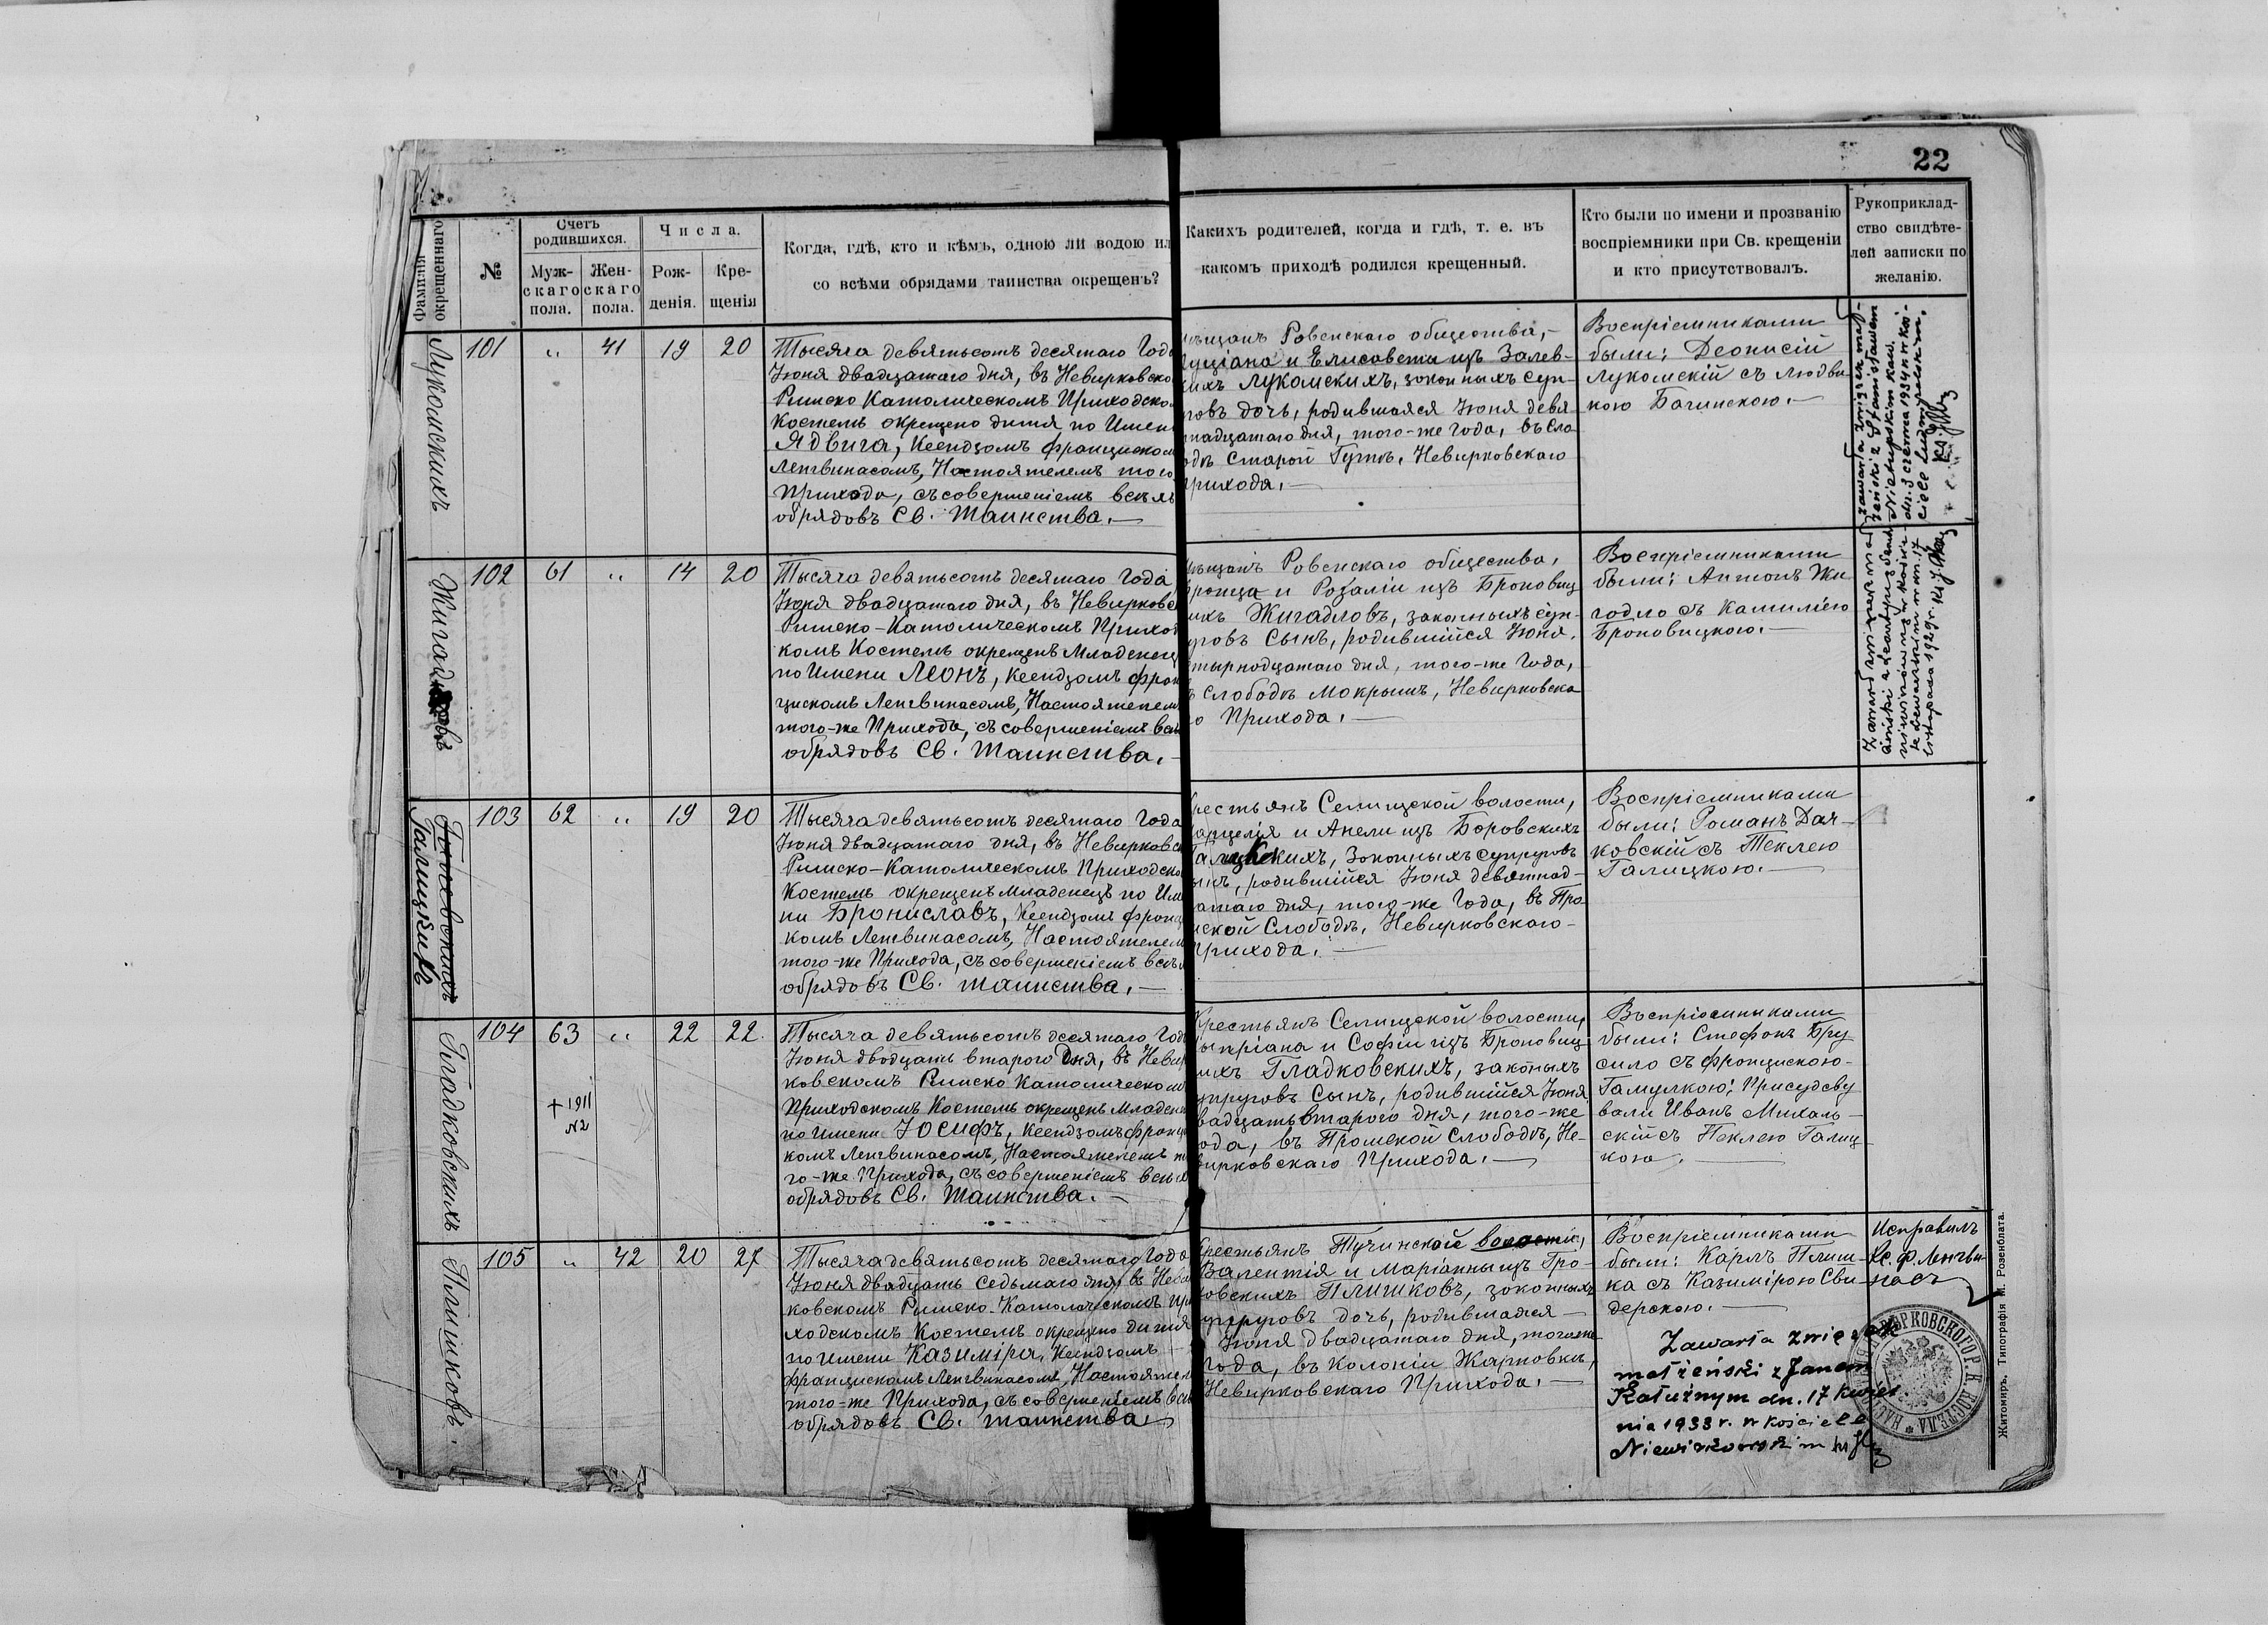 22
Фамилія окрещеннаго
№
Счетъ родившихся.
Муж-
скаго
пола.
Жен-
скаго
пола.
Числа.
Рож-
денія.
Кре-
щенія
Когда, гдѣ, кто и кѣмъ, одною ли водою ил
со всѣми обрядами таинства окрещенъ?
Какихъ родителей, когда и гдѣ, т. е. въ
какомъ приходѣ родился крещенный.
Кто были по имени и прозванію
воспріемники при Св. крещеніи
и кто присутствовалъ.
Рукоприклад-
ство свидѣте-
лей записки по
желанію.
Лукомскихъ
101 „ 41 19 20
Тысяча девятьсотъ десятаго Года
Іюня двадцатаго дня, въ Невирковско
Римско Католическомъ Приходско
Костелѣ окрещено дитя по Имени
Ядвига, Ксендзомъ Францискомъ
Ленгвинасомъ, Настоятелемъ того
Прихода, съ совершеніемъ всѣхъ
обрядовъ Св. Таинства.—
мѣщанъ Ровенскаго общества,-
Луціана и Елисаветы изъ Залев-
кихъ Лукомскихъ, законныхъ суп-
говъ дочь, родившаяся Іюня девя
надцатаго дня, того-же года, въ Сло
одѣ Старой Гутѣ, Невирковскаго
Прихода.—
Воспріемниками
были: Деонисій
Лукомскій съ Людви
кою Бачинскою.—
Zawarła związek mał-
żeński z Stanisławem
Nietupskim Kaw.
dn. 3 czerwca 1934 r. w koś-
ciele Ludwipolskim.
Жигадловъ
102 61 „ 14 20
Тысяча девятьсотъ десятаго Года
Іюня двадцатаго дня, въ Невирковс
Римско-Католическомъ Приход
комъ Костелѣ окрещенъ Младенецъ
по Имени Леонъ, Ксендзомъ Фран
цискомъ Ленгвинасомъ, Настоятелем
того-же Прихода, съ совершеніемъ всѣ
обрядовъ Св. Таинства.—
мѣщанъ Ровенскаго общества,
Франца и Розаліи изъ Броновиц
ихъ Жигадловъ, законныхъ суп-
уговъ Сынъ, родившійся Іюня
тырнодцатаго дня, того-же Года,
ъ Слободѣ Мокрымъ, Невирковска
о Прихода.—
Воспріемниками
были: Антонъ Жи
годло съ Камиліею
Броновицкою.—
Гольсевскихъ
Галицкихъ
103 62 „ 19 20
Тысяча девятьсотъ десятаго Года
Іюня двадцатаго дня, въ Невирковс
Римско-Католическомъ Приходско
Костелѣ окрещенъ младенецъ по Име
ни Брониславъ, Ксендзомъ Франц
комъ Ленгвинасомъ, Настоятелем
того-же Прихода, съ совершеніемъ всѣх
обрядовъ Св. Таинства.—
рестьянъ Селищской волости,
арцелія и Анели изъ Боровскихъ
Галицкихъ, Законныхъ супруговъ
ынъ, родившійся Іюня девятнад-
атаго дня, того-же Года, въ Про
ской Слободѣ, Невирковскаго-
Прихода.—
Воспріемниками
были: Романъ Дач-
ковскій съ Теклею
Галицкою.—
Гладковскихъ
104 63 „ 22 22.
+ 1911
№2
Тысяча девятьсотъ десятаго Года
Іюня двадцать втараго Дня, въ Невир
ковскомъ Римско Католическом
Приходскомъ Костелѣ окрещенъ Младене
по Имени Іосифъ, Ксендзомъ Франц
комъ Ленгвинасомъ, Настоятелемъ т
го-же Прихода, съ совершеніемъ всѣх
обрядовъ Св. Таинства.—
Крестьянъ Селищской волости,
ыпріана и Софіи изъ Броновиц
ихъ Гладковскихъ, законыхъ
упруговъ Сынъ, родившійся Іюня
вадцать втараго дня, того-же
ода, въ Промской Слободѣ, Не-
вирковскаго Прихода.—
Воспріемниками
были: Стефанъ Бру
сило съ Францискою-
Гамулкою; Присудсву
вали Иванъ Михаль-
скій съ Теклею Галиц-
кою.—
Плишковъ.
105 „ 42 20 27
Тысяча девятьсотъ десятаго Года
Іюня двадцать седьмаго дня, въ Невир
ковскомъ Римско-Католическомъ При
ходскомъ Костелѣ окрещено дитя
по Имени Казиміра, Ксендзомъ
Францискомъ Ленгвинасомъ, Настоятел
того-же Прихода, съ совершеніемъ всѣ
обрядовъ Св. таинства.—
рестьянъ Тучинской волости,
Валентія и Маріанны изъ Гро-
ховскихъ Плишковъ, законныхъ
упруговъ дочь, родившаяся
Іюня двадцатаго дня, тогоже
Года, въ Колоніи Жартовкѣ,
Невирковскаго Прихода.—
Воспріемниками
были: Карлъ Плиш-
ка съ Казимірою Сви-
дерскою.—
Исправилъ
Кс. Ф. Ленгви-
насъ
Zawarła związek
małżeński z Janem
Kałużnym dn. 17 kwiet
nia 1933 r. w kościele
Niewirkowskim
Житомиръ, Типографія М. Розенблата.